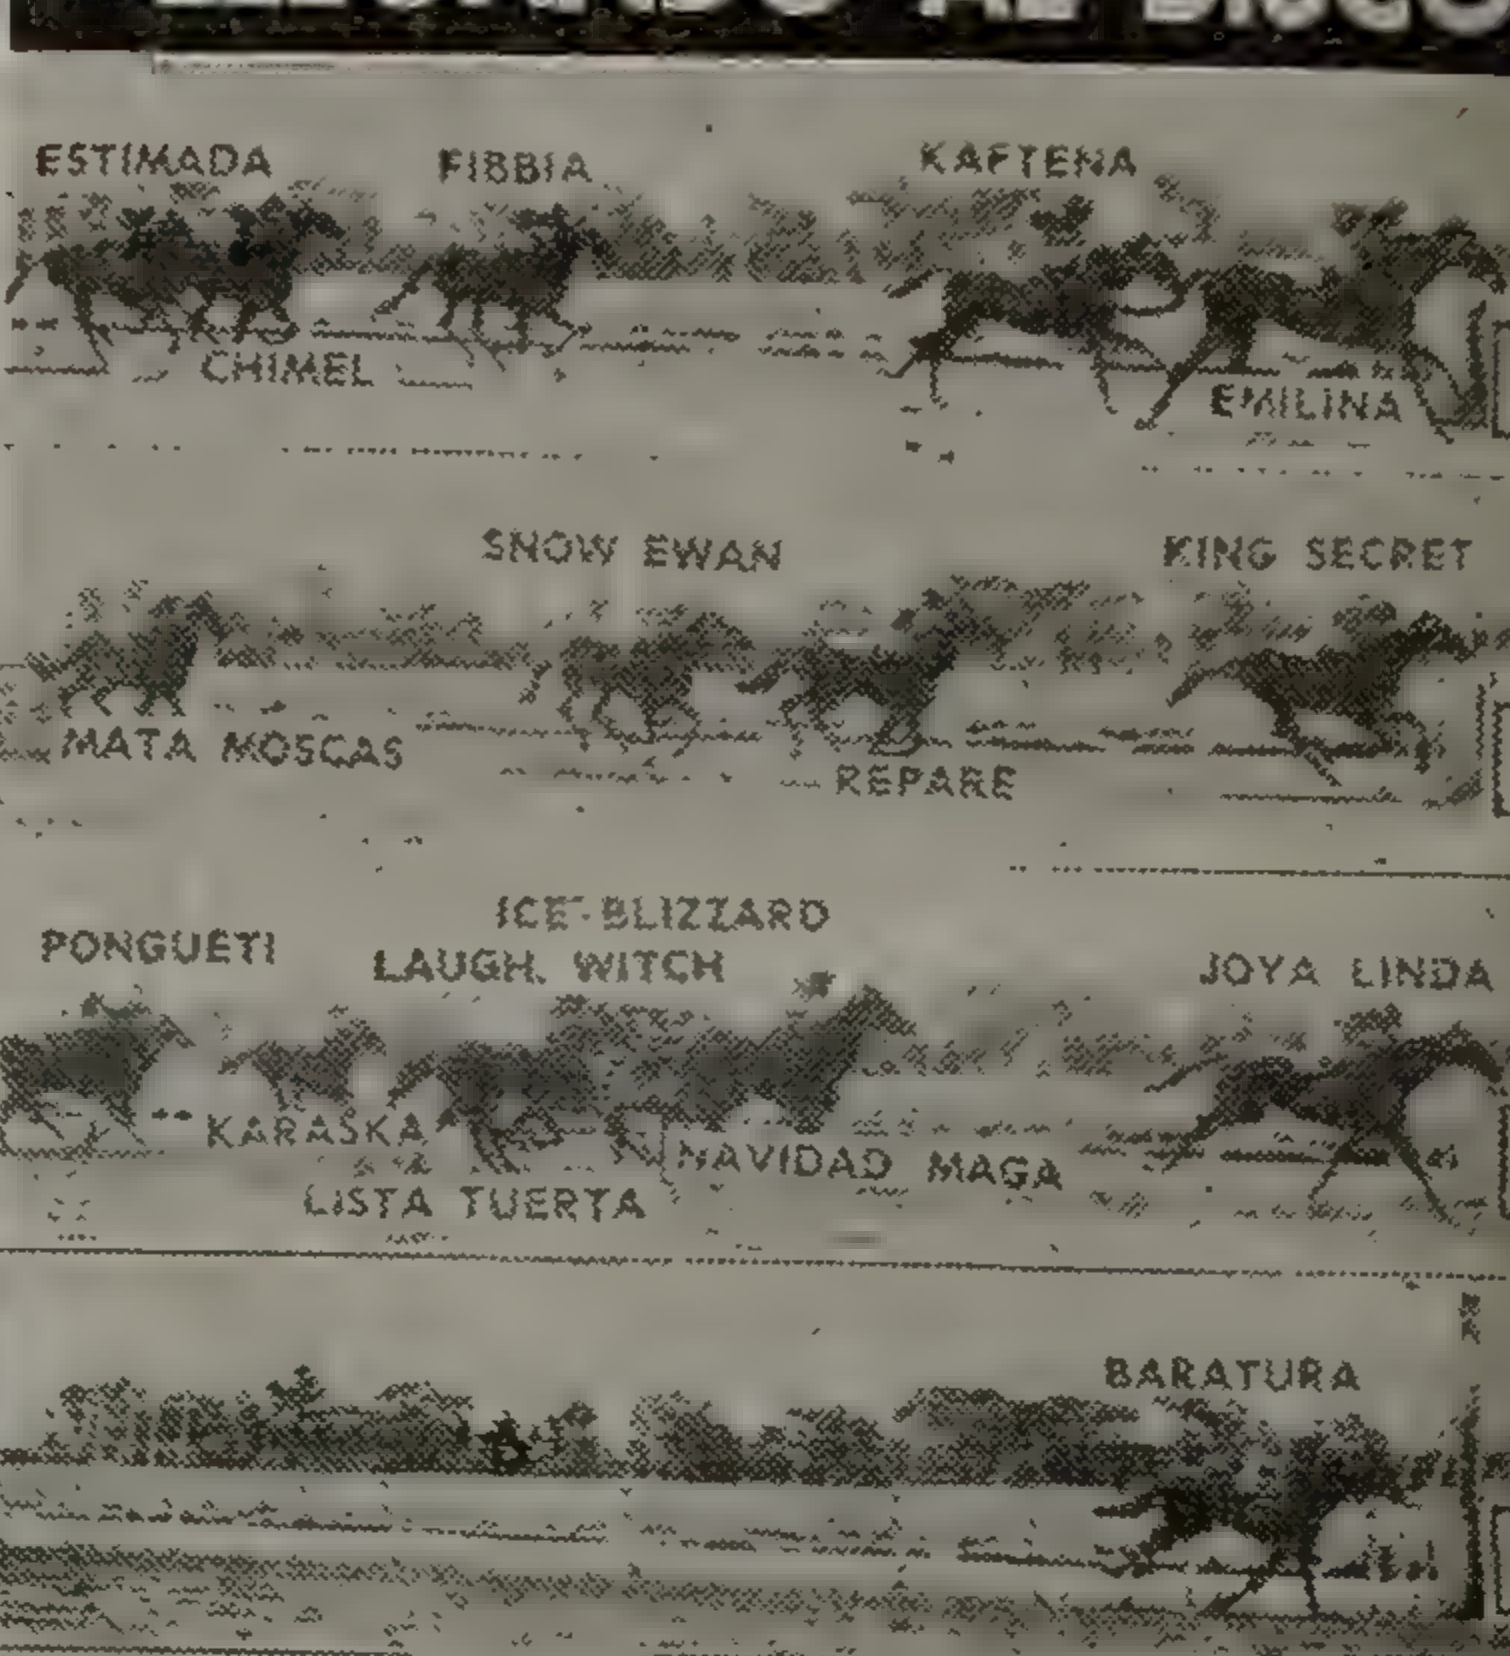 AL DISCO
ESTIMADA FIBBIA KAFTENA
CHIMEL EMILINA
SNOW EWAN KING SECRET
MATA MOSCAS REPARE
ICE-BLIZZARD
PONGUETI LAUGH. WITCH JOYA LINDA
KARASKA NAVIDAD MAGA
LISTA TUERTA
BARATURA